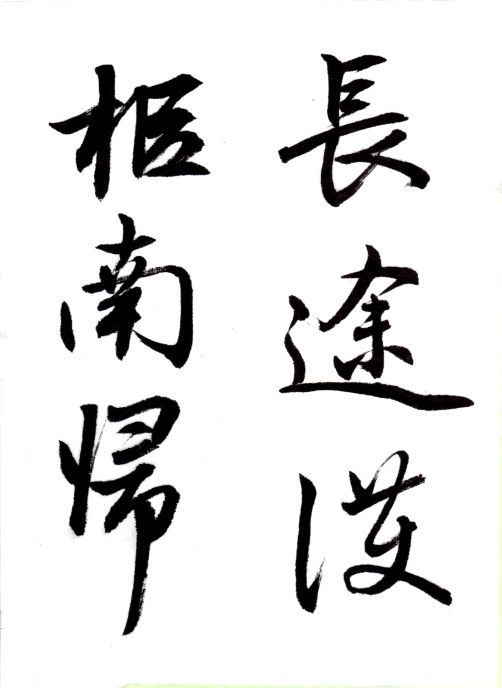 長途護
柩南帰